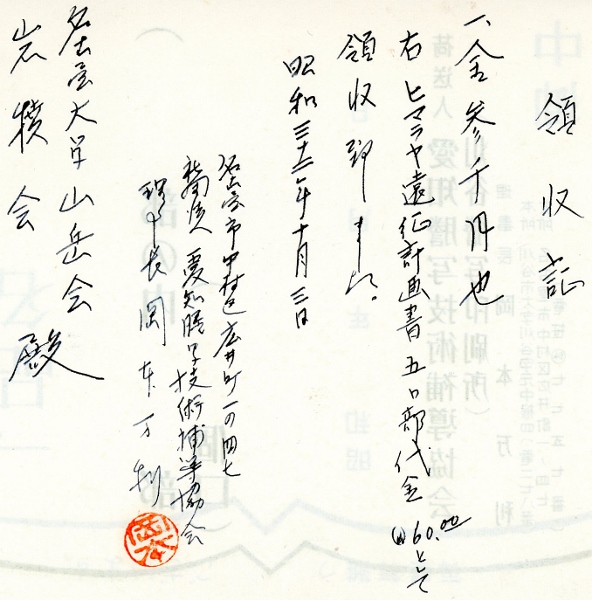 領収証
一、金参千円也
右 ヒマラヤ遠征計画書五〇部代金@60.00として
領収致しました。
昭和三十二年十月三日
名古屋市中村区広井町一の四七
社団法人 愛知謄写技術補導協会
理事長 岡本万利
名古屋大学山岳会
岩犢会 殿